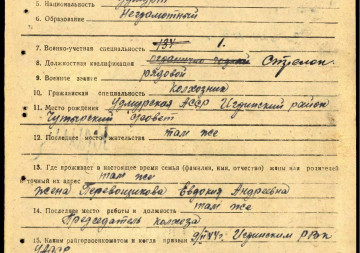 5. Национальность удмурт
6. Образование Неграмотный
7. Военно-учетная специальность 134 1.
8. Должностная квалификация Стрелок
9. Военное звание рядовой
10. Гражданская специальность Колхозник
11. Место рождения Удмурская АССР Игринский район
совет
12. Последнее место жительства там же
13. Где проживает в настоящее время семья (фамилия, имя, отчество) жены или родителей
точный их адрес там же
Жена Перевощикова Евдокия Андреевна
14. Последнее место работы и должность там же
Председатель колхоза
15. Каким райгорвоенкоматом и когда призван Игринским РВК
УАССР